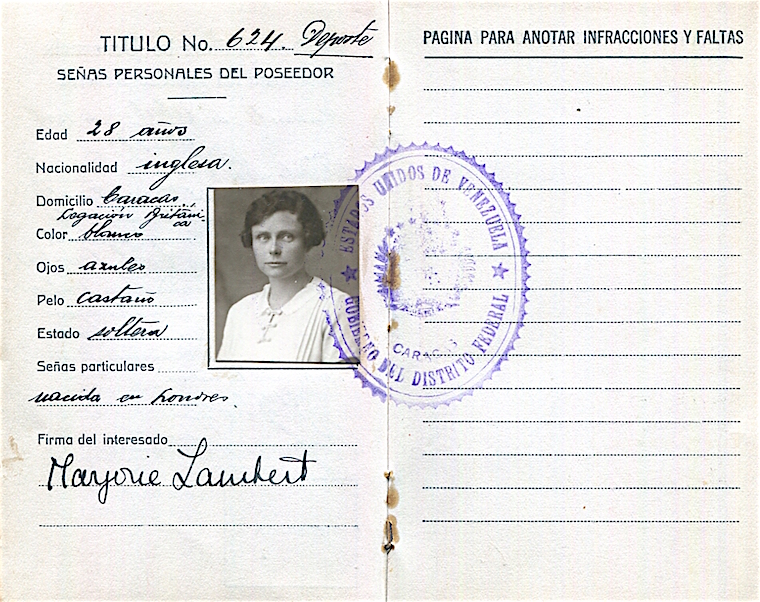 TITULO No. 624. Deporte
SEÑAS PERSONALES DEL POSEEDOR
Edad 28 años
Nacionalidad inglesa.
Domicilio Caracas,
Legación Británica
Color blanco
Ojos azules
Pelo castaño
Estado soltera
Señas particulares
nacida en Londres.
Firma del interesado
Marjorie Lambert
PAGINA PARA ANOTAR INFRACCIONES Y FALTAS
ESTADOS UNIDOS DE VENEZUELA
CARACAS
GOBIERNO DEL DISTRITO FEDERAL